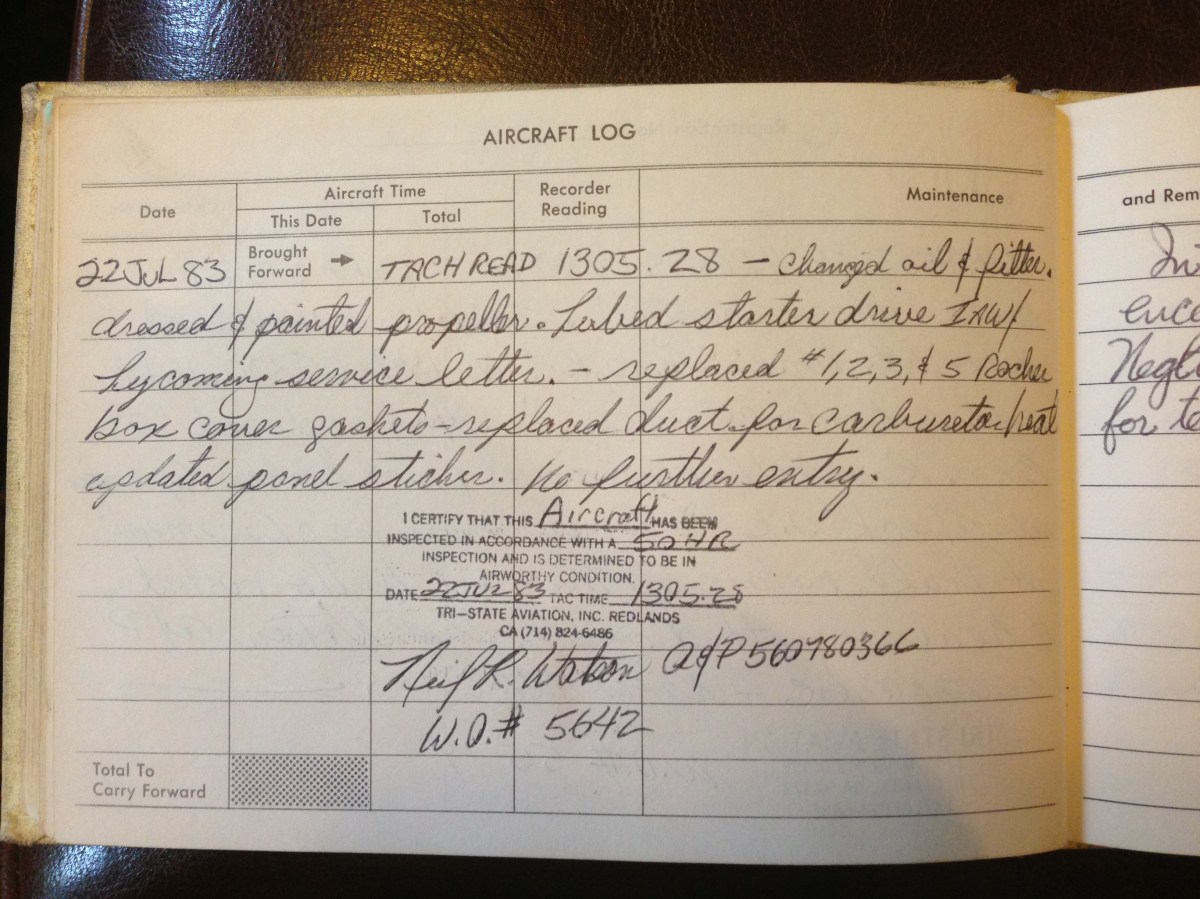 AIRCRAFT LOG
Date
Aircraft Time
This Date
Total
Recorder Reading
Maintenance
and Rem
22 JUL 83 Brought Forward → TACH READ 1305.28 – changed oil & filter.
dressed & painted propeller. Lubed starter drive IAW/
Lycoming service letter. – replaced #1,2,3,& 5 Rocker
box cover gaskets – replaced duct for carburetor heat
updated panel sticker. No further entry.
I CERTIFY THAT THIS Aircraft HAS BEEN
INSPECTED IN ACCORDANCE WITH A 50 HR
INSPECTION AND IS DETERMINED TO BE IN
AIRWORTHY CONDITION.
DATE 22 JUL 83 TAC TIME 1305.28
TRI-STATE AVIATION, INC. REDLANDS
CA (714) 824-6486
Neil R. Watson A&P 560780366
W.O.# 5642
Total To
Carry Forward
euce
Negl
for te